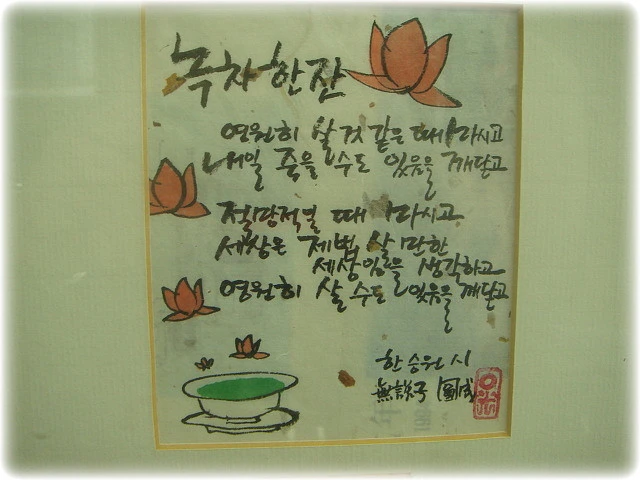 녹차 한 잔
영원히 살 것 같은 때 마시고
내일 죽을 수도 있음을 깨닫고
절망적일 때 마시고
세상은 제법 살 만한
세상임을 생각하고
영원히 살 수도 있음을 깨닫고
한승원 시